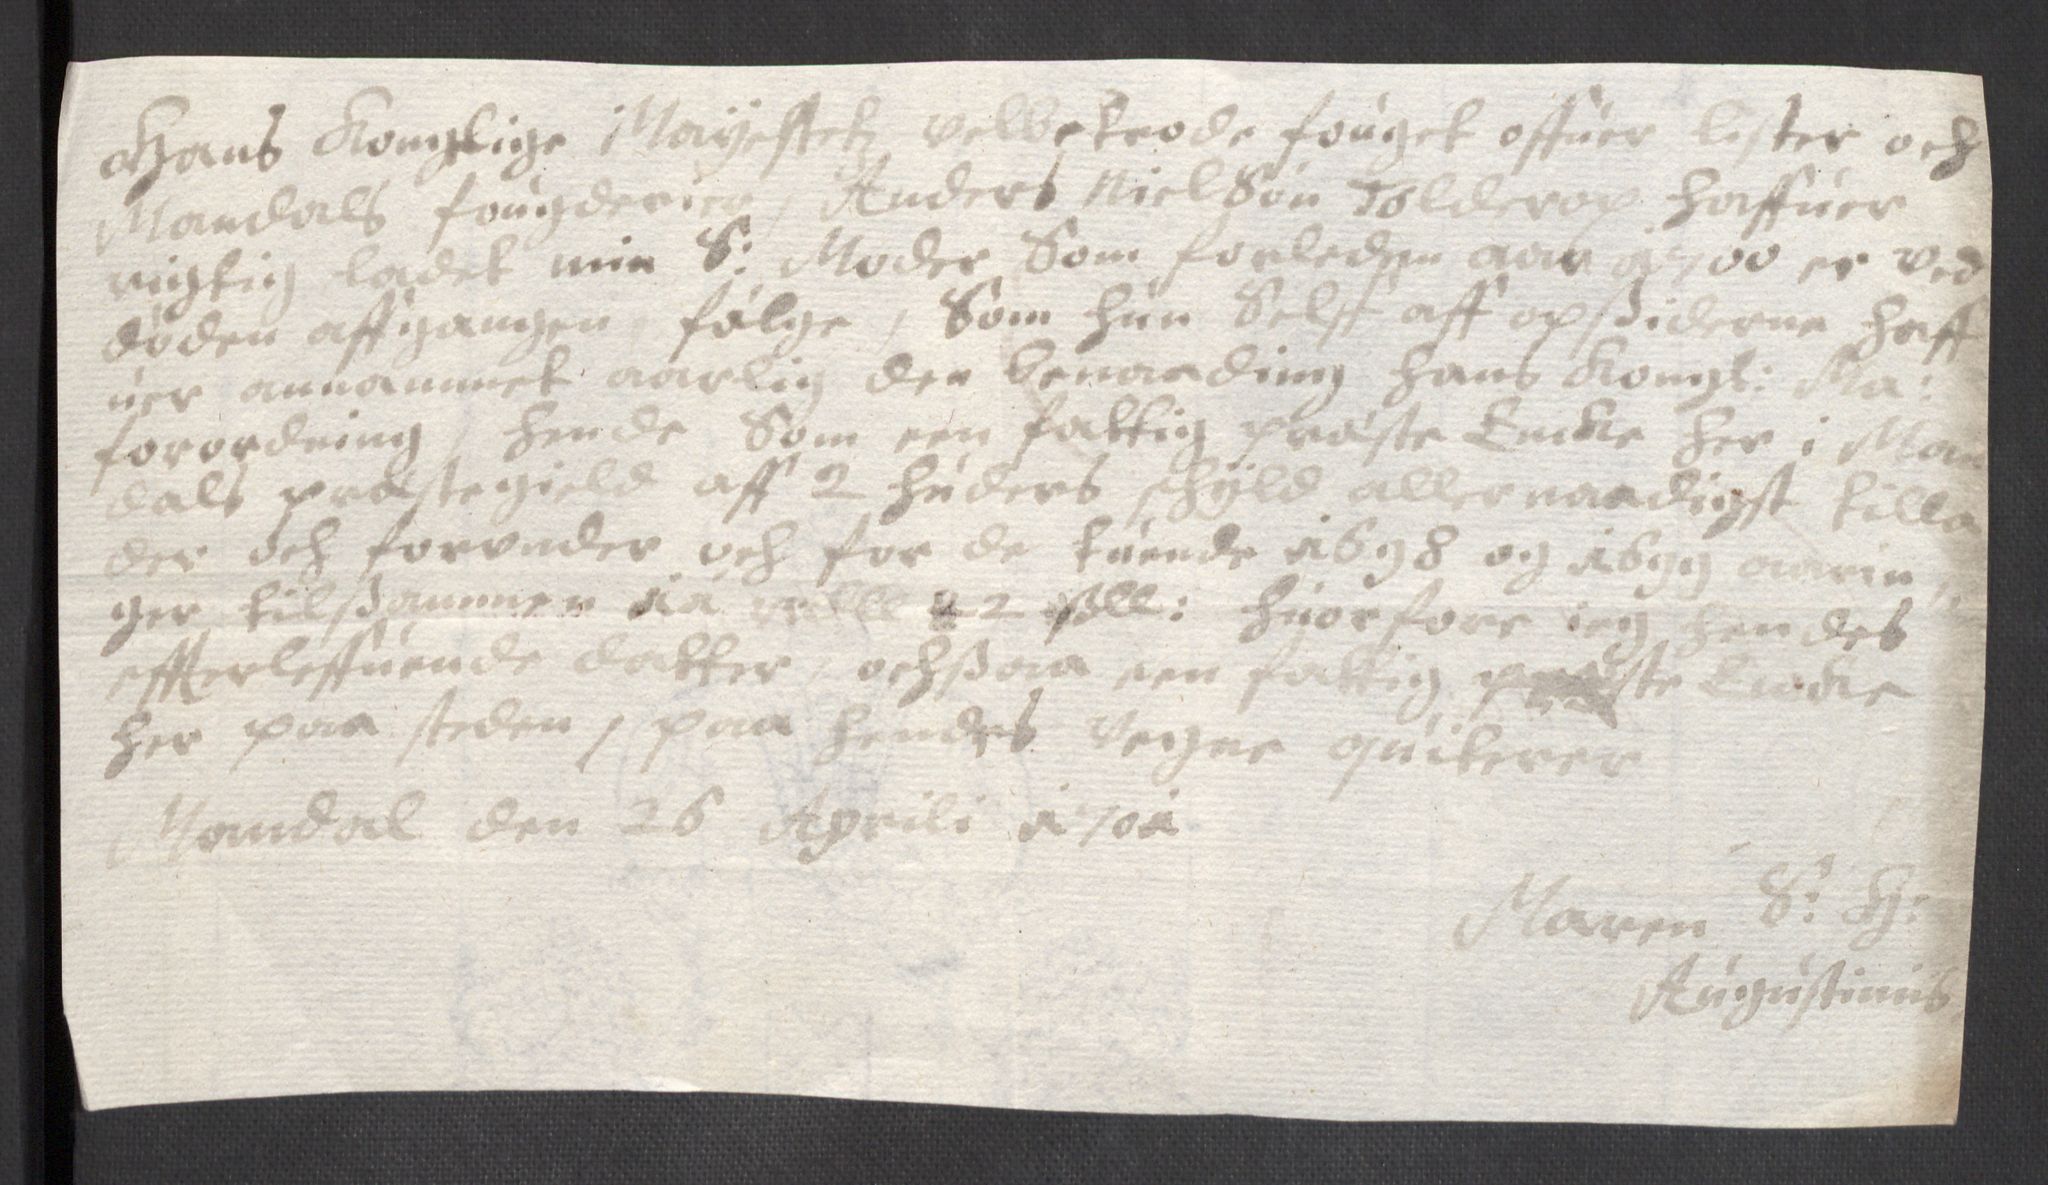 Hans Konglige Mayestetz velbetrode fouget offuer lister och
Mandals fougderier, Anders Nielsøn Tolderop haffuer
rigtig ladet min S: Moder som forleden aar 1700 er ved
døden affgangen, følge, som hun selff aff opsiderne haff
uer annammet aarlig den benaading hans Kongl: Ma:
forordning, hende som een fattig præste Encke her i Man
dals præstegield aff 2 huders schyld allernaadigst tilla
der och forunder och for de tuende 1698 og 1699 aarin
ger tilsammen 22 hvorfore ieg hendes
effterleffuende datter, ochsaa een fattig præste Encke
her paa steden, paa hendes vegne quiterer
Mandal den 26 Aprili 1701
Maren S: H:
Augustinus